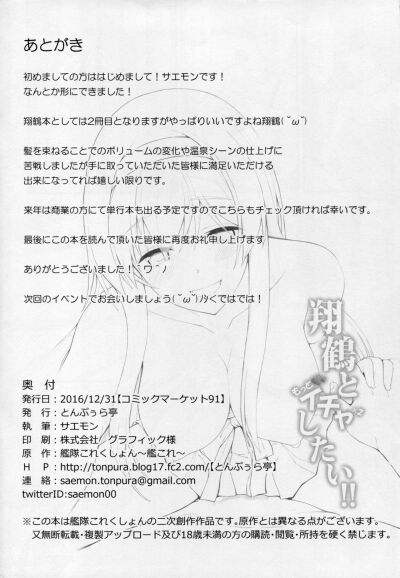 あとがき
初めましての方ははじめまして！サエモンです！
なんとか形にできました！
翔鶴本としては2冊目となりますがやっぱりいいですよね翔鶴(˘ω˘)
髪を束ねることでのボリュームの変化や温泉シーンの仕上げに
苦戦しましたが手に取っていただいた皆様に満足いただける
出来になってれば嬉しい限りです。
来年は商業の方にて単行本も出る予定ですのでこちらもチェック頂ければ幸いです。
最後にこの本を読んで頂いた皆様に再度お礼申し上げます
ありがとうございました！｀ワ´ノ
次回のイベントでお会いしましょう(˘ω˘)ﾉｼくではでは！
翔鶴と
もっと
イチャイチャ
したい!!
奥　付
発行日：2016/12/31【コミックマーケット91】
発　行：とんぷぅら亭
執　筆：サエモン
印　刷：株式会社　グラフィック様
原　作：艦隊これくしょん～艦これ～
Ｈ　Ｐ：http://tonpura.blog17.fc2.com/【とんぷぅら亭】
連　絡：saemon.tonpura@gmail.com
twitterID:saemon00
※この本は艦隊これくしょんの二次創作作品です。原作とは異なる点がございます。
又無断転載・複製アップロード及び18歳未満の方の購読・閲覧・所持を硬く禁じます。